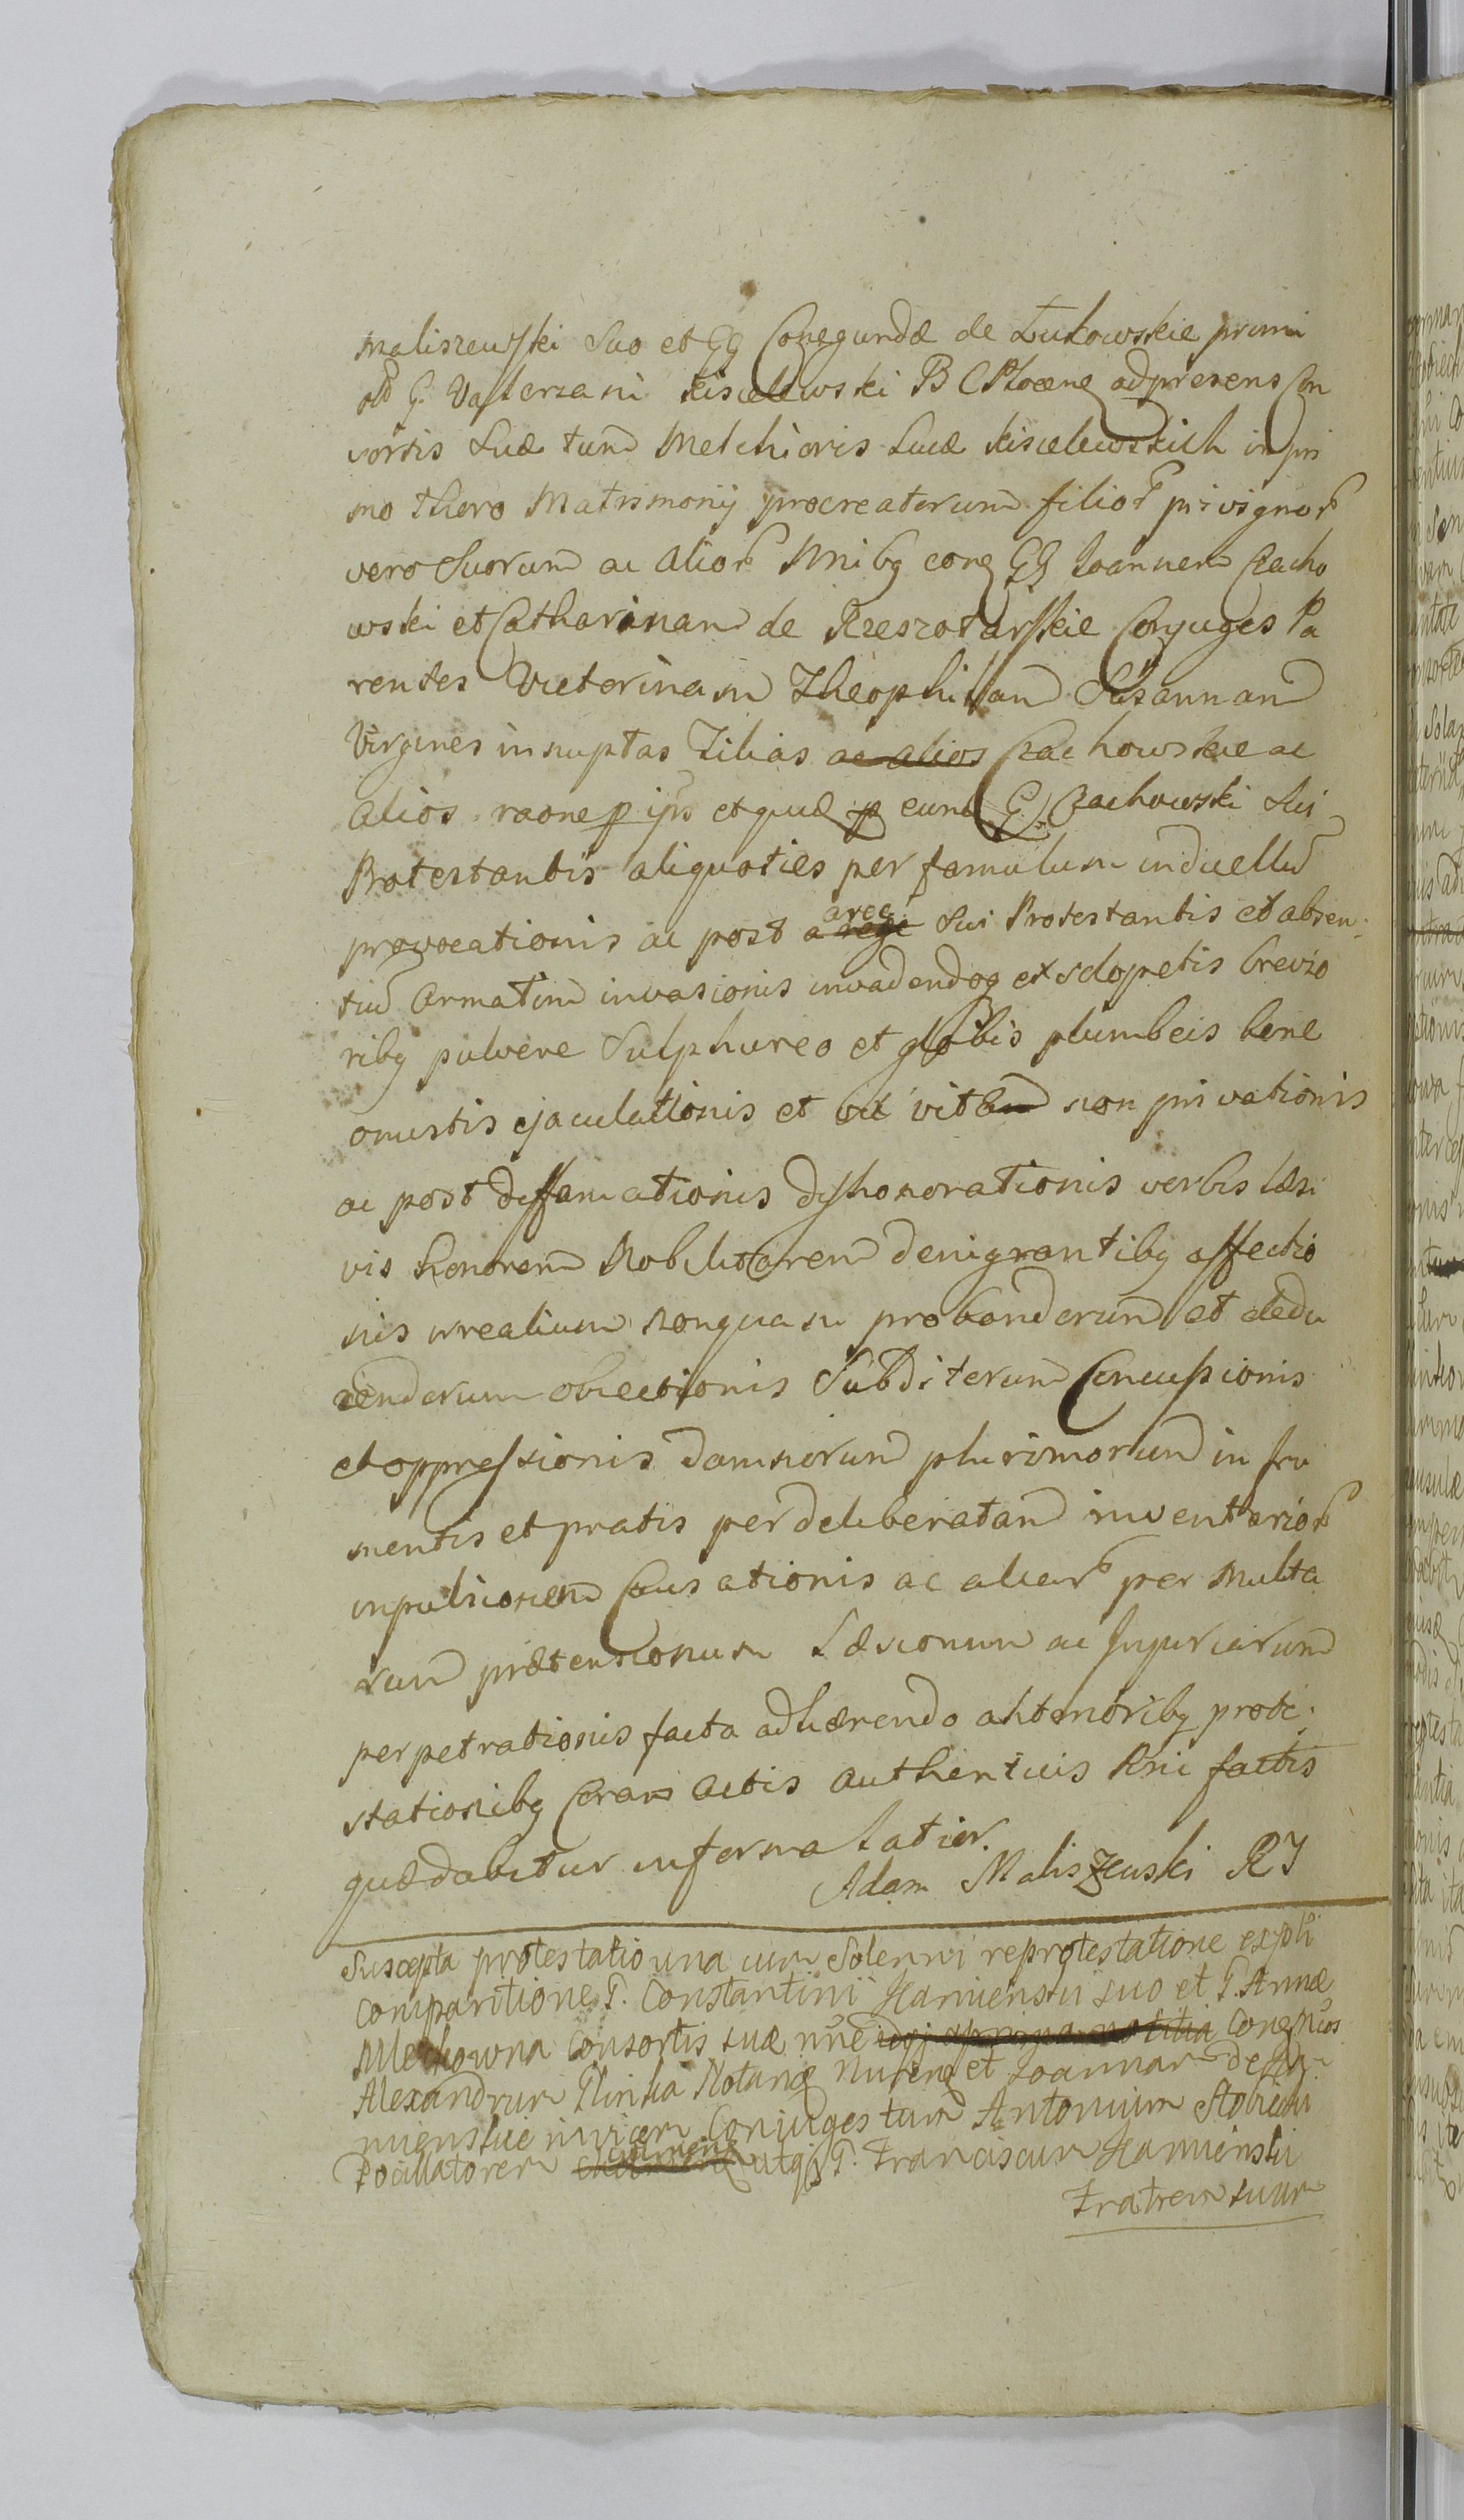 Maliszewski Suo et GG Conegundæ de Łukowskie primi
olo G. Valerzani Kisielewski B C Plocens ad presens Con
sortis Suæ tum Melchioris Lucæ Kisielewskich in pri
mo thoro Matrimonij procreatorum filior privignor
vero Suorum ac alior Nnibq conq GG Joannem Czacho
wski et Catharinam de Rzeszotarskie Conjuges Pa
rentes Victorinam Theophillam Susannam
Virgines innuptas Filias ac alios Czachowskie ac
alios raone p ips et quæ p eund G. Czachowski Sui
Protestantis aliquoties per famulum in duellum
provocationis ac post a rege areg Sui Protestantis et absen
tiu armatim invasionis invadendoq ex sclopetis brevio
ribq pulvere Sulphureo et globis plumbeis bene
onustis ejaculationis et vix vita non privationis
ac post deffamationis dishonorationis verbis læsi
vis honorem Nobilitarem denigrantibq affectio
nis irrealium nonquam probandorum et dedu
cendorum obiectionis Subditorum Concussionis
et oppressionis damnorum plurimorum in fru
mentis et pratis per deliberatam inventarior
inpulsionem Causationis ac aliar per multa
rum prætensionum Læsionum ac Injuriarum
perpetrationis facta adhærendo antenoribq prote
stationibq Coram actis authenticis Rni factis
quæ dabitur in forma latior.
Adam Maliszewski RJ
Suscepta protestatio una cum Solenni reprotestatione expli
Comparitione G. Constantini Kamienski suo et G. Annæ
Consortis suæ nñe Conq
Alexandrum Glinka Notariq Nurenq et Joannam de
mienskie invicem Conjuges tum Antonium
Pocillatorem utqs G. Franciscum Kamienski
Fratrem suum